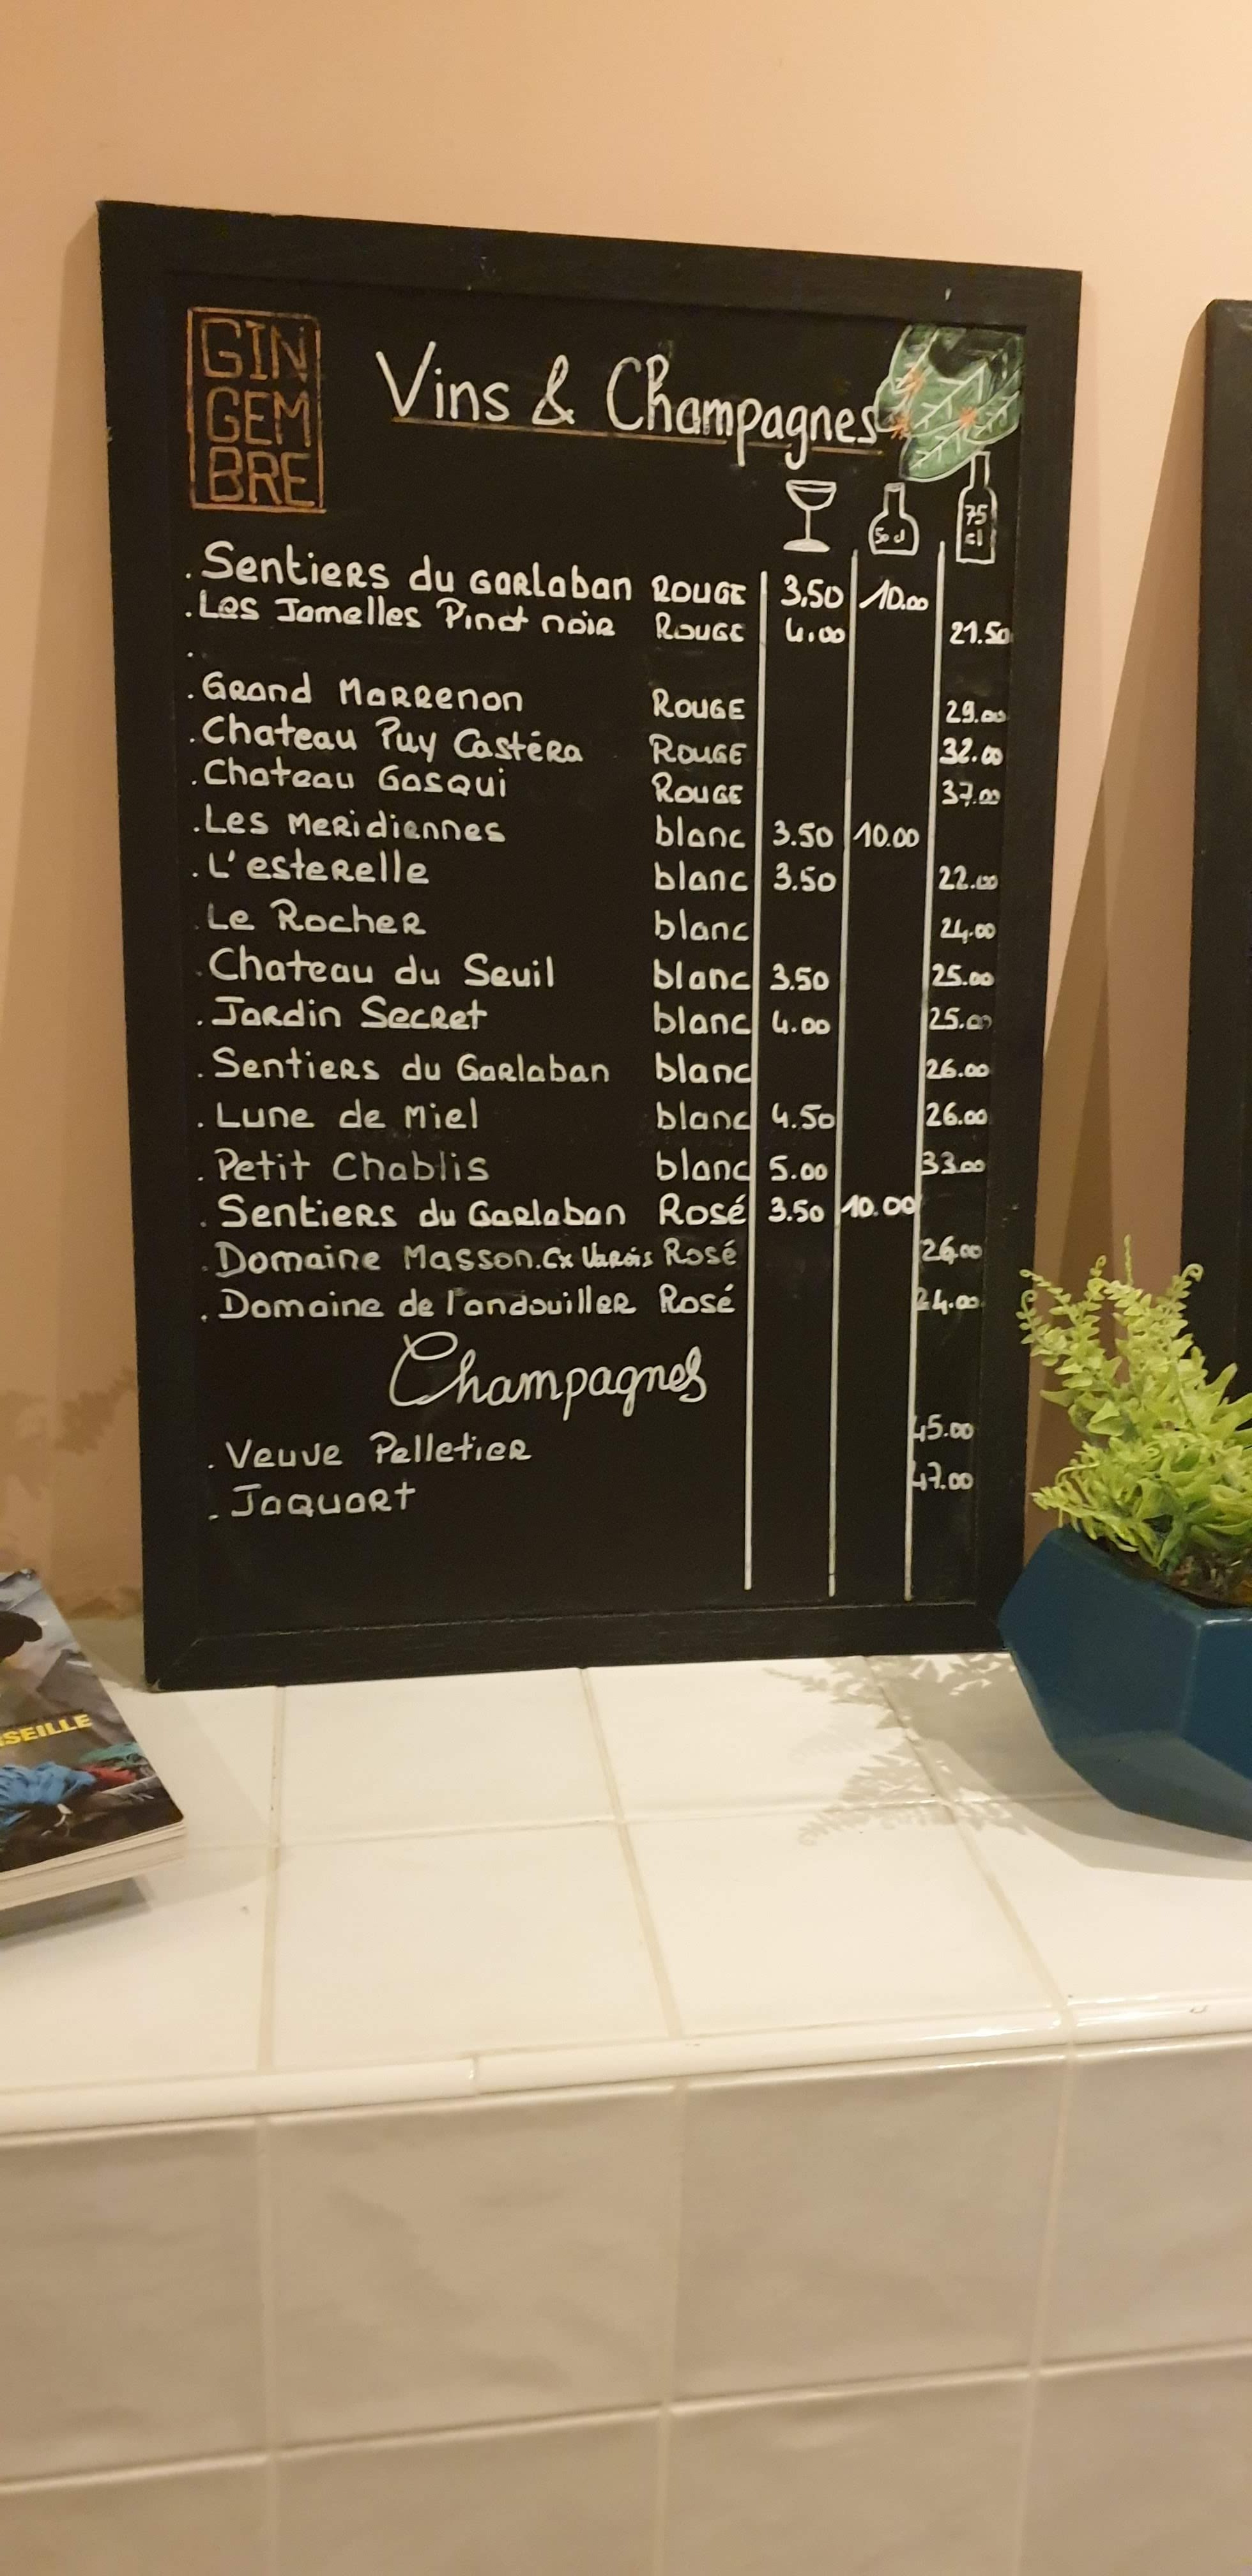 GIN
GEM
BRE
Vins & Champagnes
50 cl
75 cl
. Sentiers du Garlaban Rouge 3,50 10.00
. Les Jamelles Pinot noir Rouge 4.00 21.50
.
. Grand Marrenon Rouge 29.00
. Chateau Puy Castéra Rouge 32.00
. Chateau Gasqui Rouge 37.00
. Les Meridiennes blanc 3.50 10.00
. L'esterelle blanc 3.50 22.00
. Le Rocher blanc 24.00
. Chateau du Seuil blanc 3.50 25.00
. Jardin Secret blanc 4.00 25.00
. Sentiers du Garlaban blanc 26.00
. Lune de Miel blanc 4.50 26.00
. Petit Chablis blanc 5.00 33.00
. Sentiers du Garlaban Rosé 3.50 10.00
. Domaine Masson. Cx Varois Rosé 26.00
. Domaine de l'andouiller Rosé 24.00
Champagnes
. Veuve Pelletier 45.00
. Jaquart 47.00
SEILLE